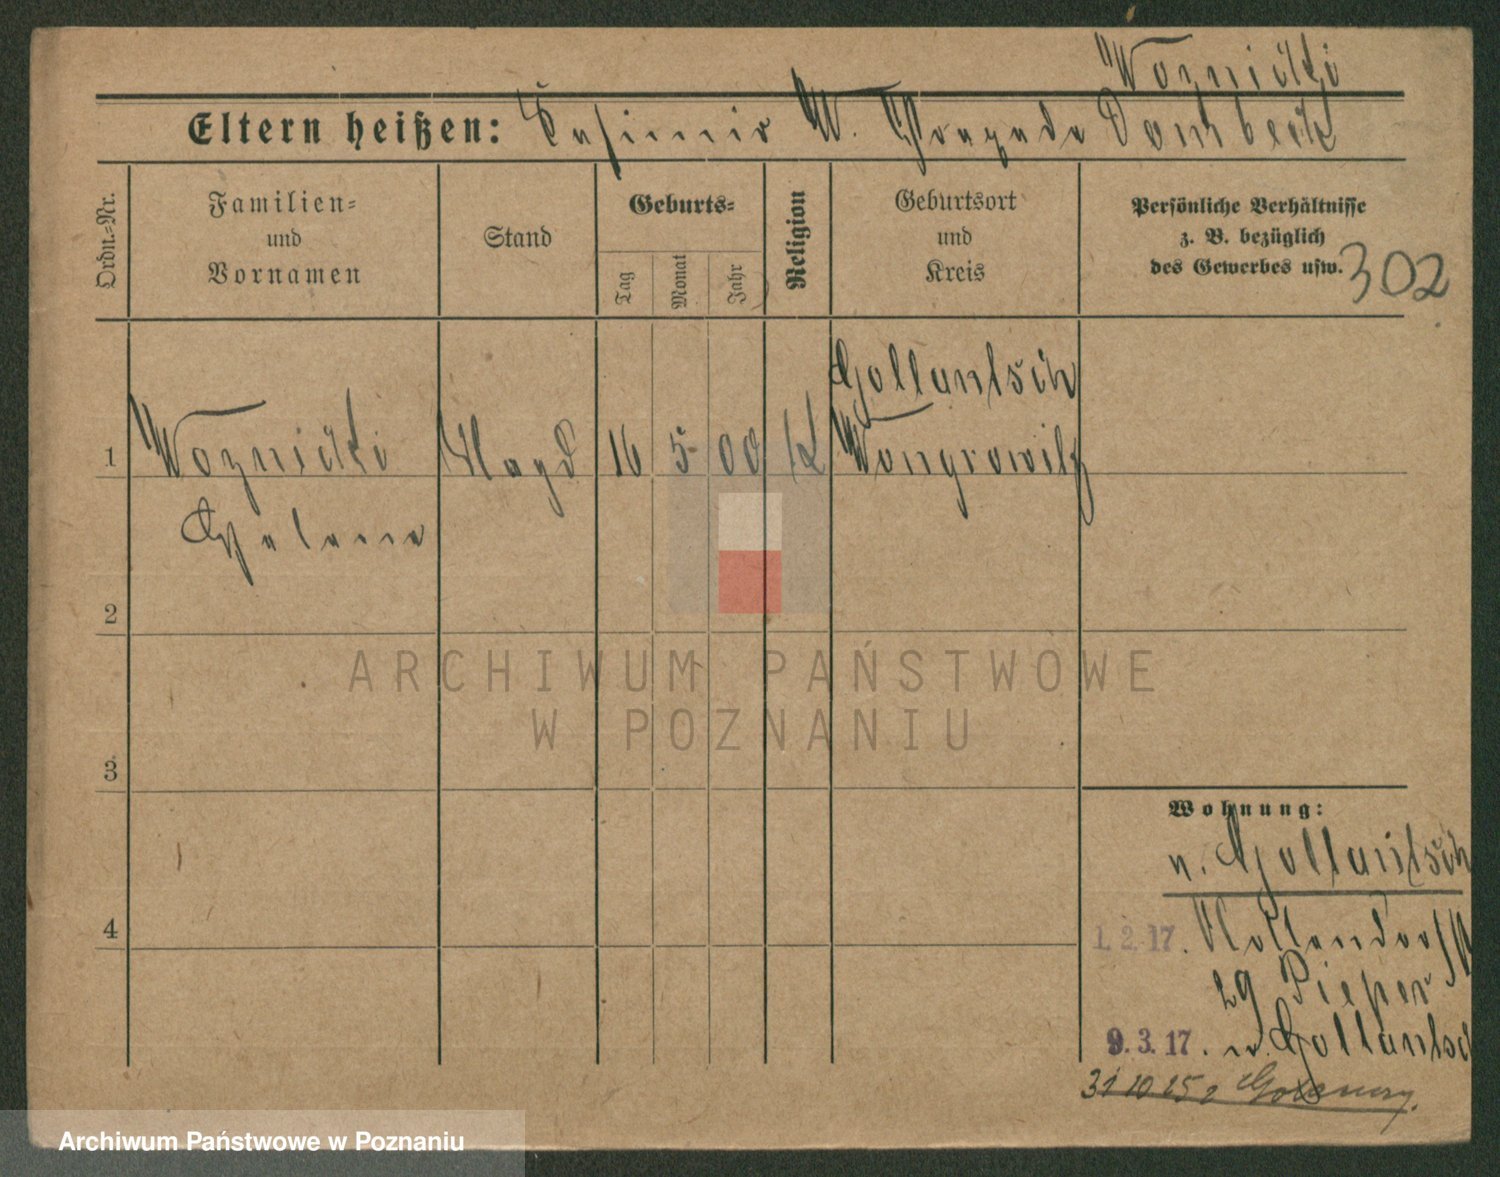 Woznicki
Eltern heißen: Kasimir W. Praxeda Dombeck
Ordn.-Nr.
Familien-
und
Vornamen
Stand
Geburts-
Tag
Monat
Jahr
Religion
Geburtsort
und
Kreis
Persönliche Verhältnisse
z. B. bezüglich
des Gewerbes usw.
302
Gollantsch
1 Woznicki Magd 16 5 00 K Wongrowitz
Helene
2
3
4
ARCHIWUM PAŃSTWOWE
W POZNANIU
Wohnung:
n. Gollantsch
1.2.17.
29 Pieper
9.3.17. n. Gollantsch
31 10 25
Archiwum Państwowe w Poznaniu